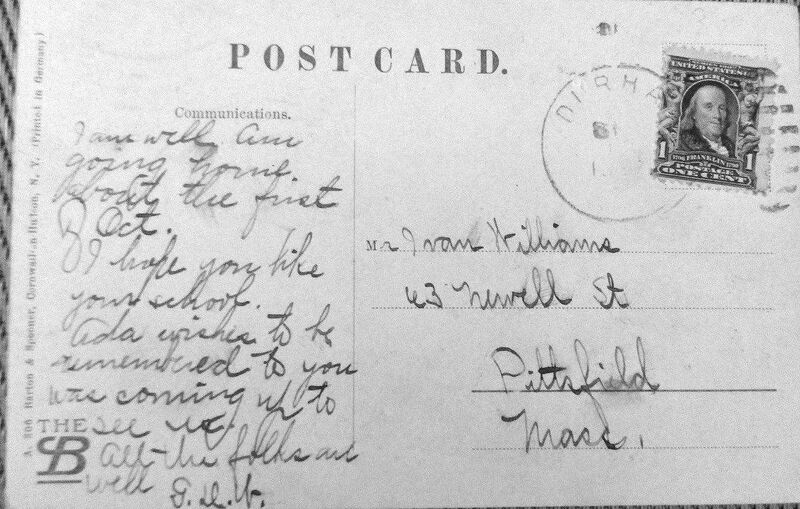 POST CARD.
Communications.
I am well. Am
going home
about the first
of Oct.
I hope you like
your school.
Ada wishes to be
remembered to you
was coming up to
see us.
All the folks are
well
Mr Ivan Williams
63 Newell St
Pittsfield
Mass.
DURHA
UNITED STATES
AMERICA
1 1
1706 FRANKLIN 1790
POSTAGE
ONE CENT
A 306 Barton & Spooner, Cornwall-on-Hudson, N. Y. (Printed in Germany.)
THE